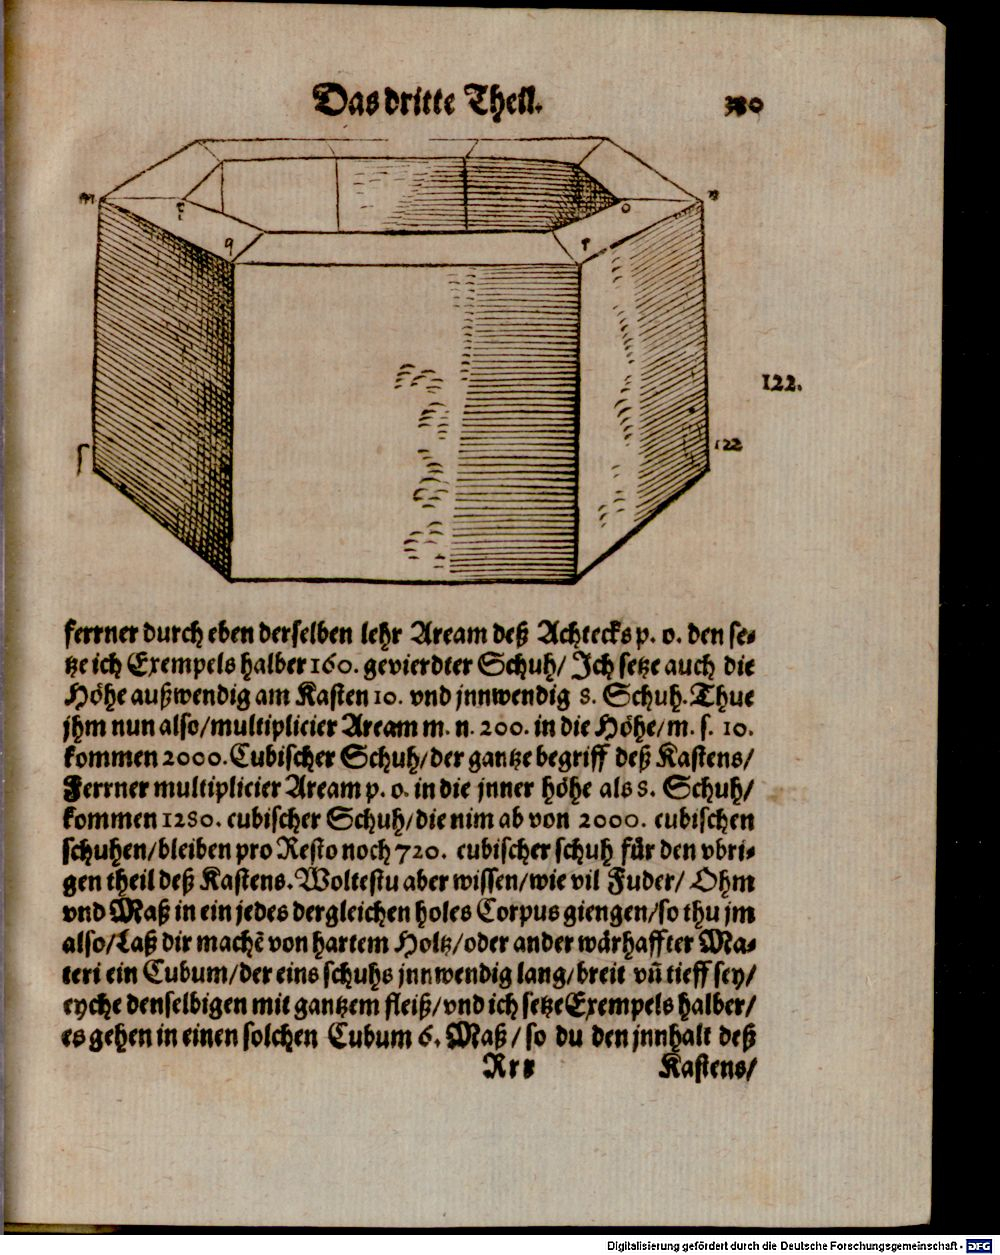 Das dritte Theil.
380
m
n
o
q
p
122.
ſ
122
ferrner durch eben derselben lehr Aream deß Achtecks p. o. den se⸗
tze ich Exempels halber 160. gevierdter Schuh/ Ich setze auch die
Höhe außwendig am Kasten 10. vnd jnnwendig 8. Schuh. Thue
jhm nun also/multiplicier Aream m. n. 200. in die Höhe/m. s. 10.
kommen 2000. Cubischer Schuh/der gantze begriff deß Kastens/
Ferrner multiplicier Aream p. o. in die jnner höhe als 8. Schuh/
kommen 1280. cubischer Schuh/die nim ab von 2000. cubischen
schuhen/bleiben pro Resto noch 720. cubischer schuh für den vbri⸗
gen theil deß Kastens. Woltestu aber wissen/wie vil Fuder/ Ohm
vnd Maß in ein jedes dergleichen holes Corpus giengen/so thu jm
also/Laß dir machẽ von hartem Holtz/oder ander wärhaffter Ma⸗
teri ein Cubum/der eins schuhs jnnwendig lang/breit vñ tieff sey/
eyche denselbigen mit gantzem fleiß/vnd ich setze Exempels halber/
es gehen in einen solchen Cubum 6. Maß/ so du den jnnhalt deß
Rrr
Kastens/
Digitalisierung gefördert durch die Deutsche Forschungsgemeinschaft - DFG